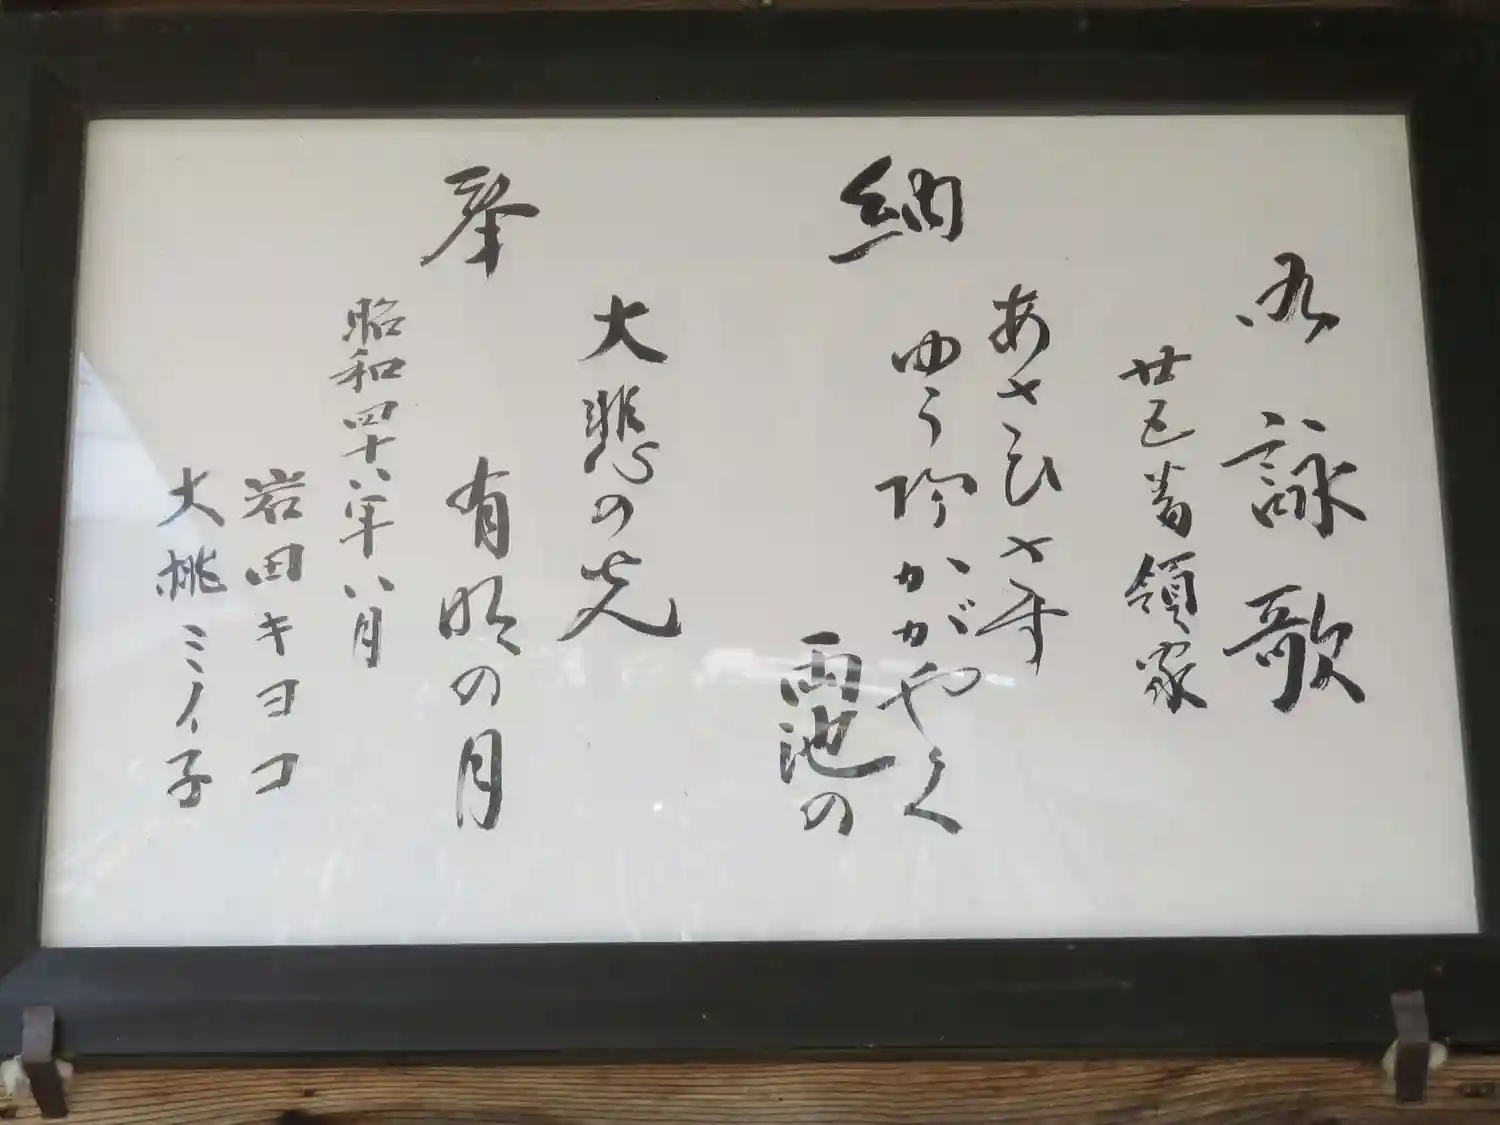 奉納
御詠歌
廿五番領家
あさひさす
ゆう陽かがやく
雨池の
大悲の光
有明の月
昭和四十八年八月
岩田キヨコ
大桃ミイ子